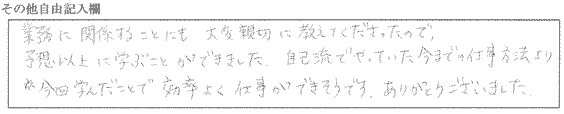 その他自由記入欄
業務に関係することにも大変親切に教えてくださったので、
予想以上に学ぶことができました。自己流でやっていた今までの仕事方法より
今回学んだことで効率よく仕事ができそうです。ありがとうございました。